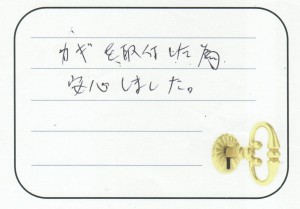 カギを取付した為
安心しました。